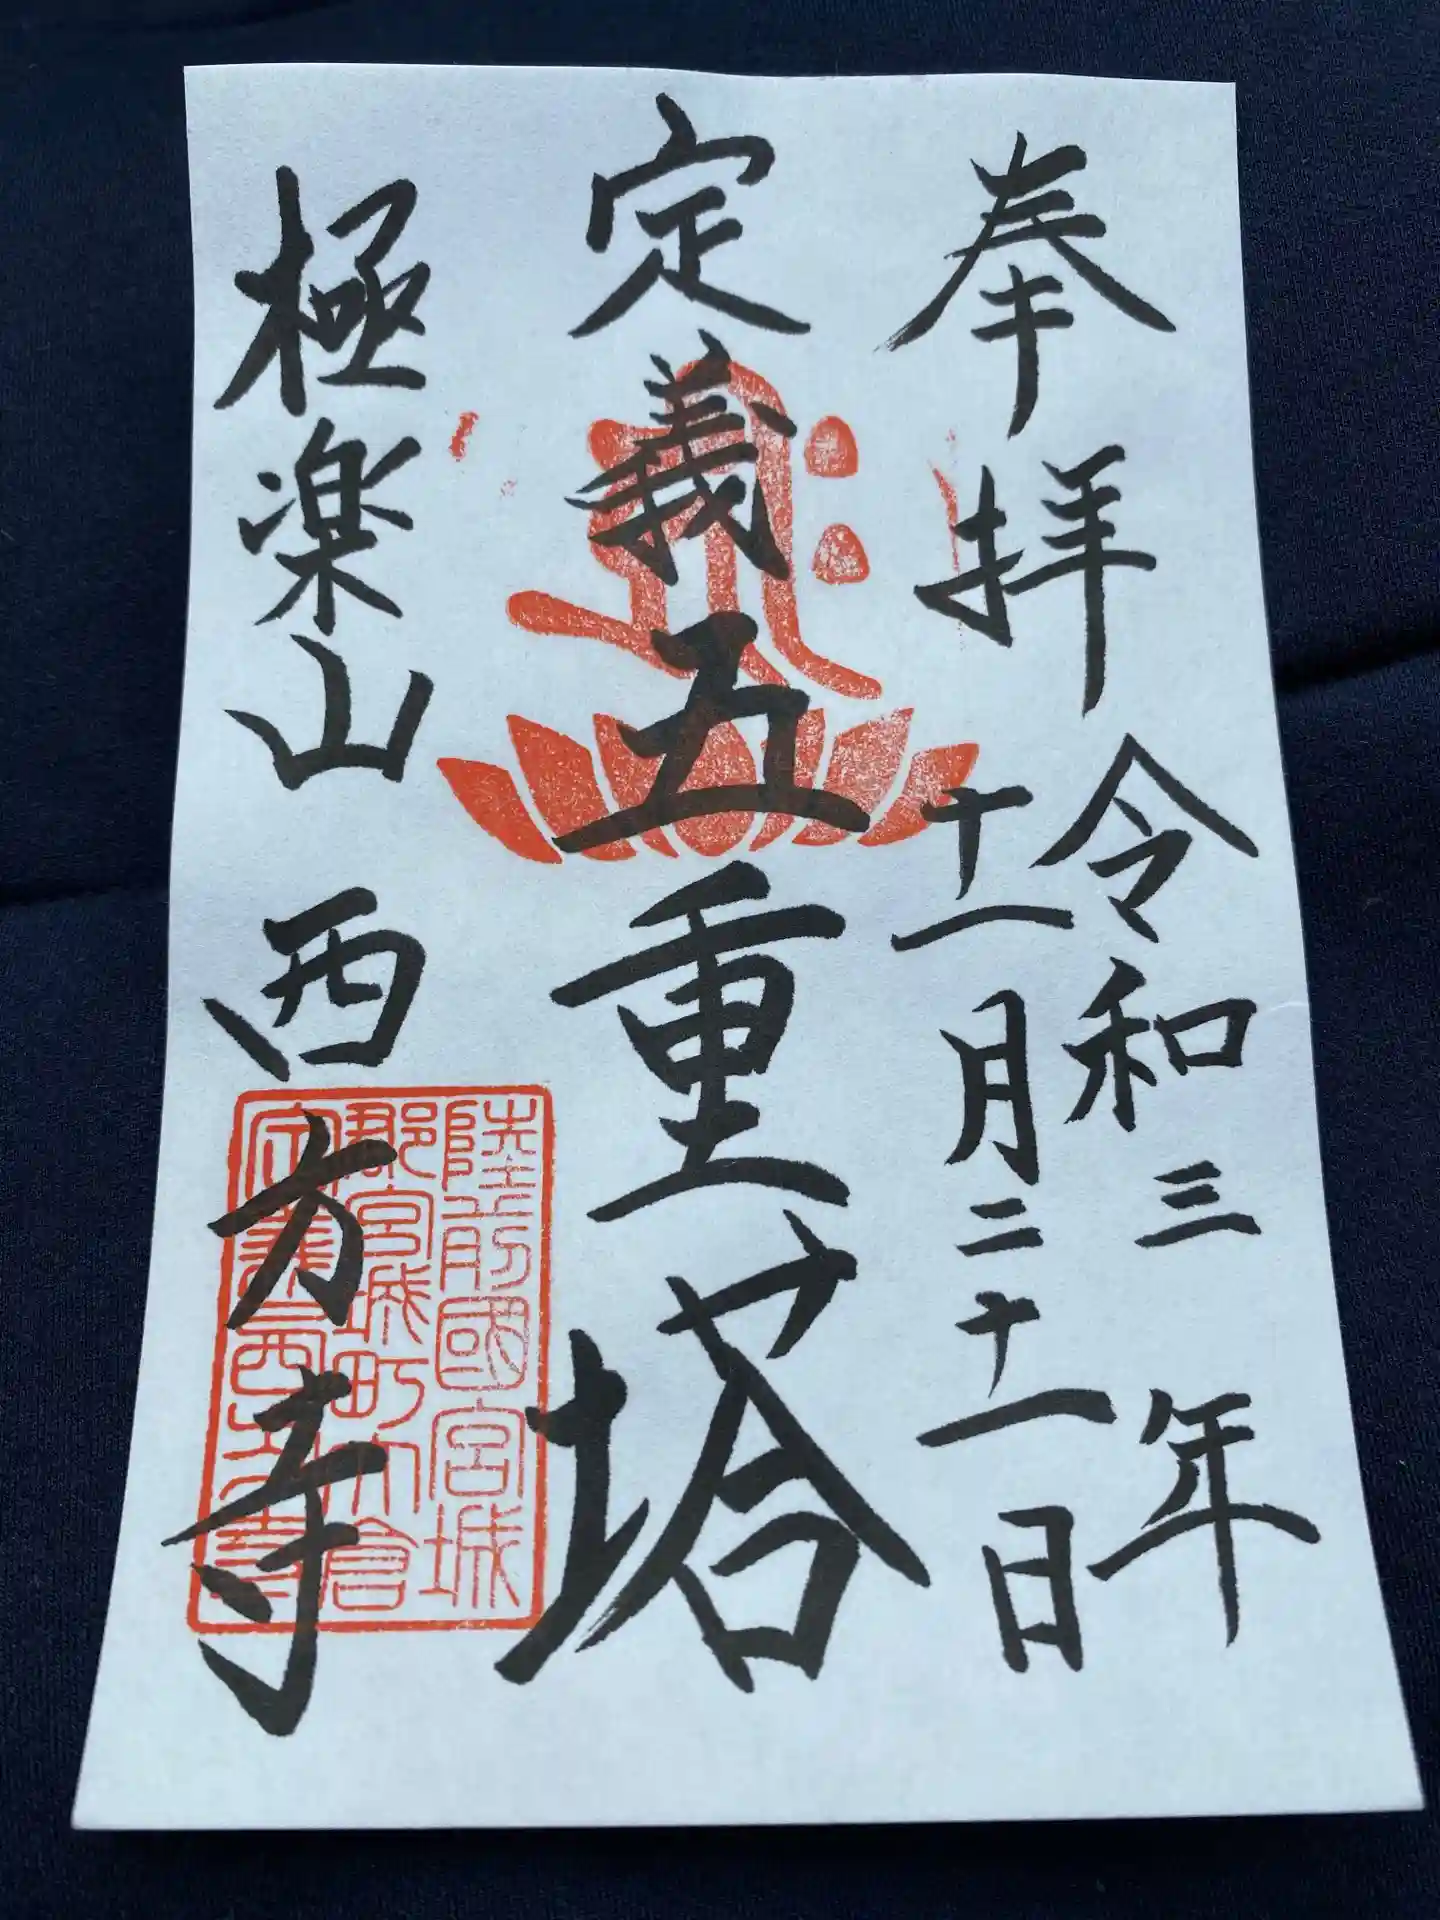 奉拝
令和三年
十一月二十一日
定義五重塔
極楽山 西方寺
陸前國宮城
郡宮城町大倉
定義西方寺